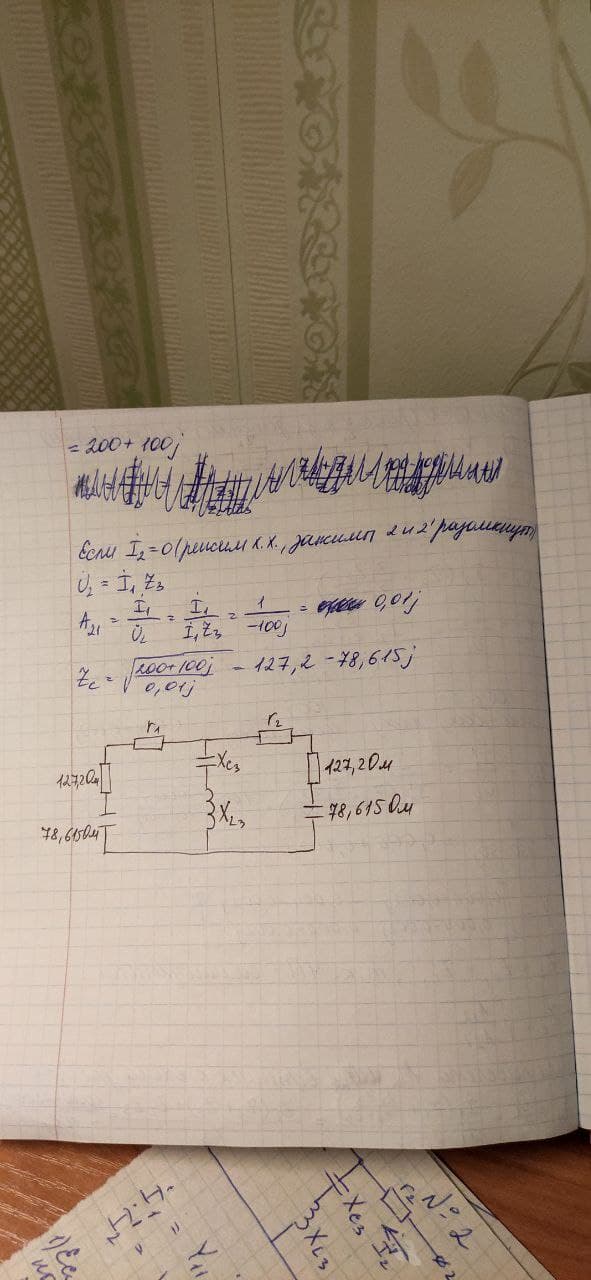 = 200 + 100j
Если İ₂ = 0 (режим х.х., зажимы 2 и 2' разомкнуты)
U̇₂ = İ₁ Z₃
A₂₁ = İ₁/U̇₂ = İ₁/İ₁Z₃ = 1/-100j = 0,01j
Zc = √(200+100j/0,01j) = 127,2 - 78,615j
r₁ r₂
Xc₃
127,2 Ом 127,2 Ом
XL₃
78,615 Ом 78,615 Ом
№ 2
r₂
Xc₃
İ₂
XL₃
İ₁ = Y₁₁
İ₂ =
1) Ес